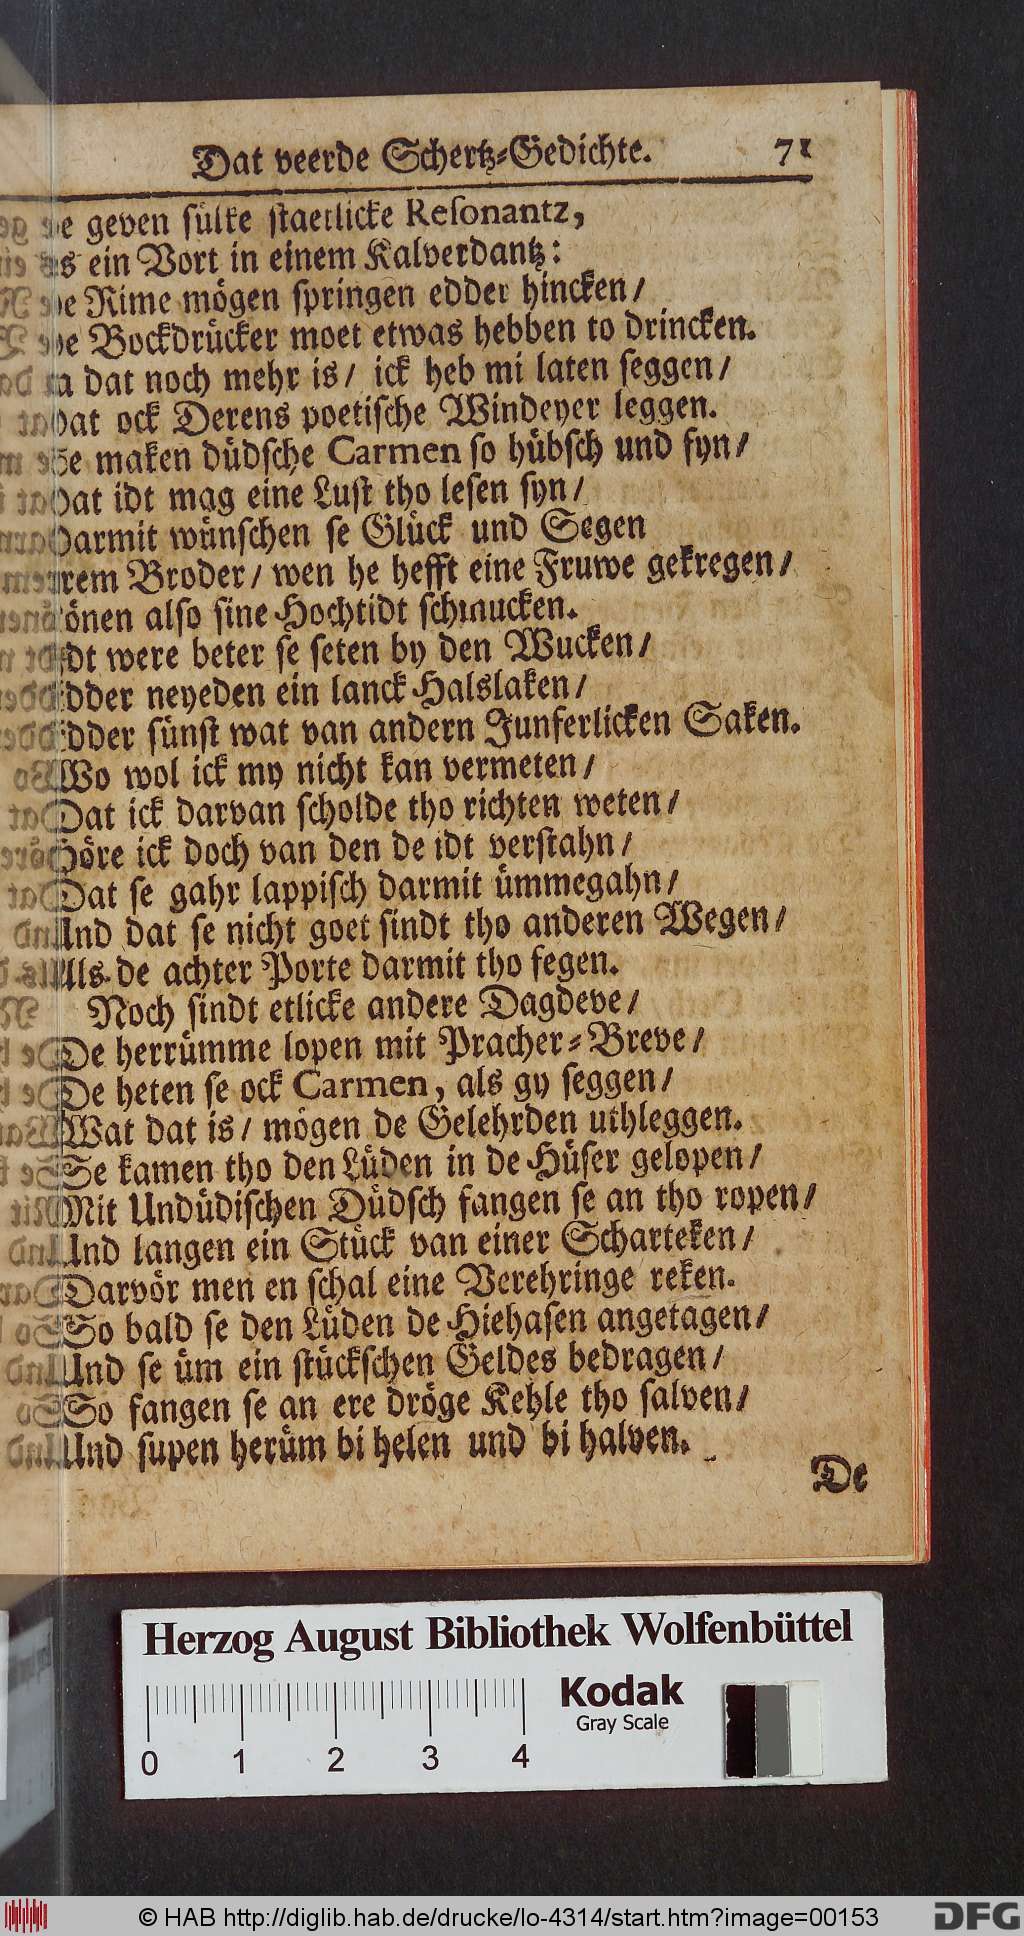 Dat veerde Schertz-Gedichte. 71
geven sülke staetlicke Resonantz,
ein Vort in einem Kalverdantz:
Rime mögen springen edder hincken/
Bockdrücker moet etwas hebben to drincken.
dat noch mehr is/ ick heb mi laten seggen/
Dat ock Derens poetische Windeyer leggen.
Se maken düdsche Carmen so hübsch und fyn/
Dat idt mag eine Lust tho lesen syn/
Darmit wünschen se Glück und Segen
erem Broder/ wen he hefft eine Fruwe gekregen/
Könen also sine Hochtidt schmucken.
Idt were beter se seten by den Wucken/
Edder neyeden ein lanck Halslaken/
Edder sünst wat van andern Junferlicken Saken.
Wo wol ick my nicht kan vermeten/
Dat ick darvan scholde tho richten weten/
Höre ick doch van den de idt verstahn/
Dat se gahr lappisch darmit ümmegahn/
Und dat se nicht goet sindt tho anderen Wegen/
Als de achter Porte darmit tho fegen.
Noch sindt etlicke andere Dagdeve/
De herrümme lopen mit Pracher-Breve/
De heten se ock Carmen, als gy seggen/
Wat dat is/ mögen de Gelehrden uthleggen.
Se kamen tho den Lüden in de Hüser gelopen/
Mit Undüdischen Düdsch fangen se an tho ropen/
Und langen ein Stück van einer Scharteken/
Darvör men en schal eine Verehringe reken.
So bald se den Lüden de Hiehasen angetagen/
Und se üm ein stückschen Geldes bedragen/
So fangen se an ere dröge Kehle tho salven/
Und supen herüm bi helen und bi halven.
De
Herzog August Bibliothek Wolfenbüttel
Kodak
Gray Scale
0 1 2 3 4
© HAB http://diglib.hab.de/drucke/lo-4314/start.htm?image=00153
DFG